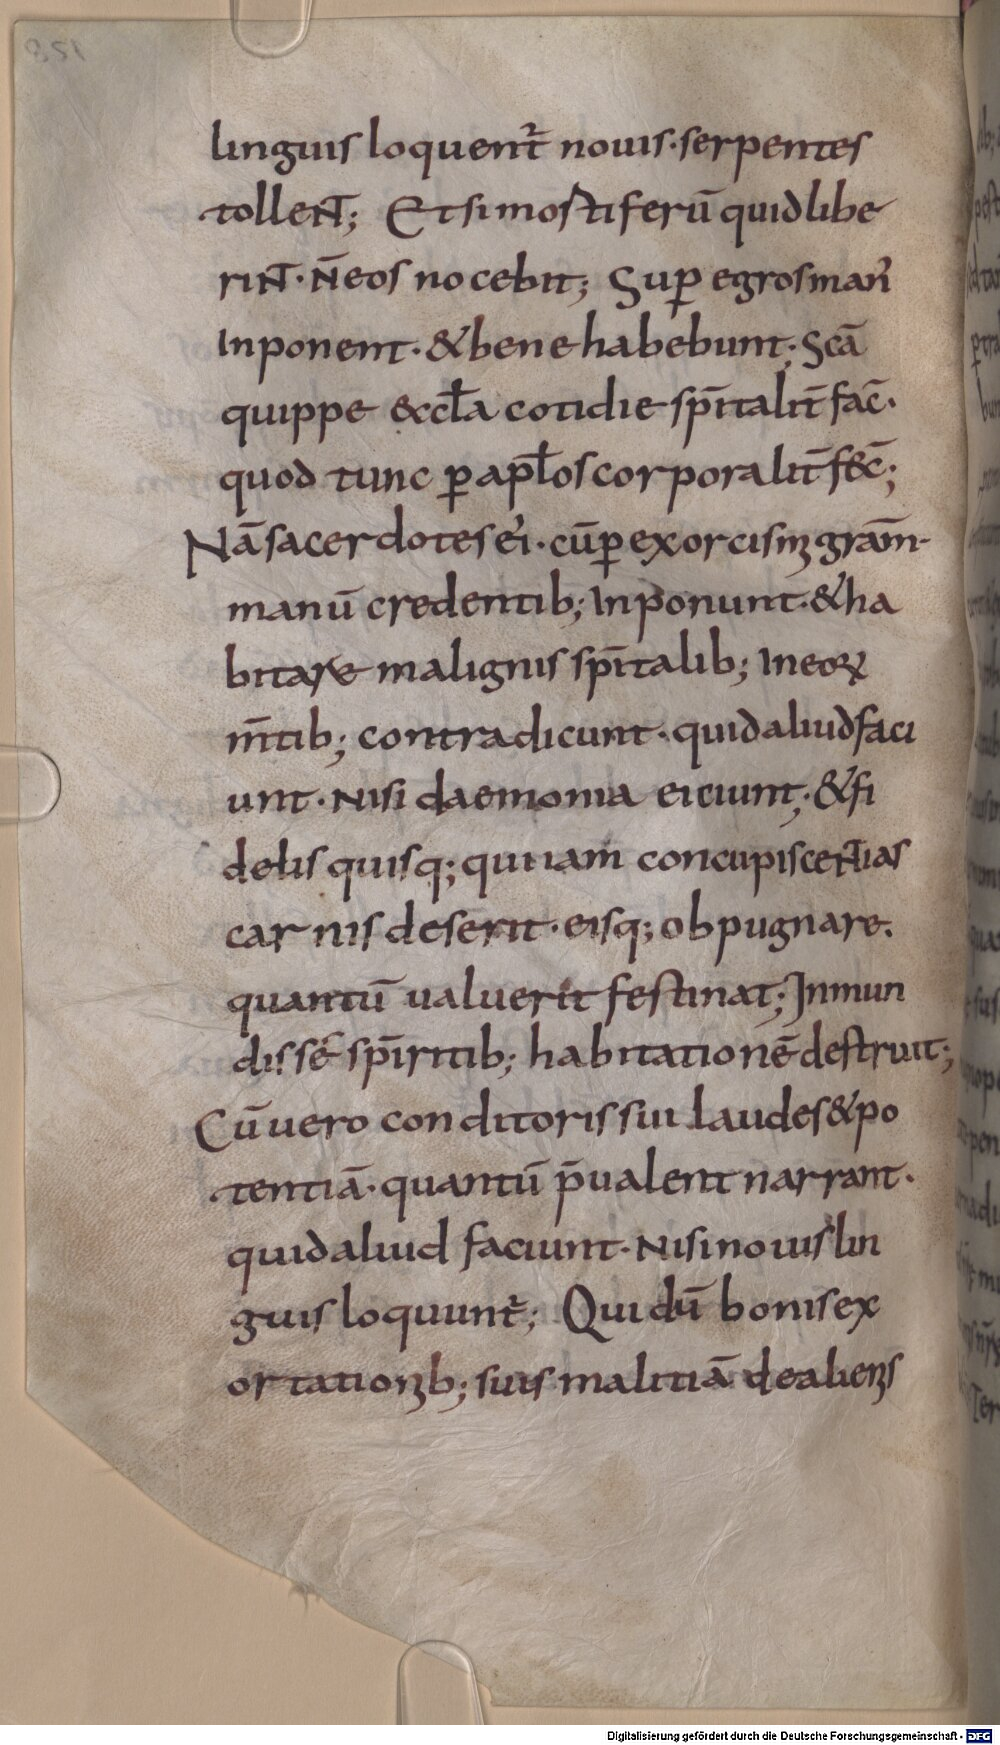 linguis loquent᷑ nouis·serpentes
tolleNT; Et si mostiferū quid libe
riNT· N̄ eos nocebit; Suꝑ egros man᷑
Inponent·& bene habebunt; Scā
quippe eccl̄a cotidie sp̄italit̄ fac̄·
quod tunc ꝑ apl̄os corporalit̄ fec̄;
Nā sacerdotes ei᷑· cū ꝑ exorcismi grām·
manū credentib; Inponunt·& ha
bitare malignis sp̄italib; In eoꝝ
m̄tib; contradicunt· quid aliud faci
unt· Nisi daemonia eiciunt; & fi
delis quisq; qui iam concupisceNTias
carnis deserit· eisq; obpugnare.
quantū ualuerit festinat; Inmun
dis sē sp̄iritib; habitationē destruit;
Cū uero conditoris sui laudes & po
tentiā· quantū p̄ualent narrant·
quid aliud faciunt· Nisi nouis lin
guis loquunt᷑; Qui dū bonis ex
ortationib; suis malitiā de alienis
Digitalisierung gefördert durch die Deutsche Forschungsgemeinschaft - DFG